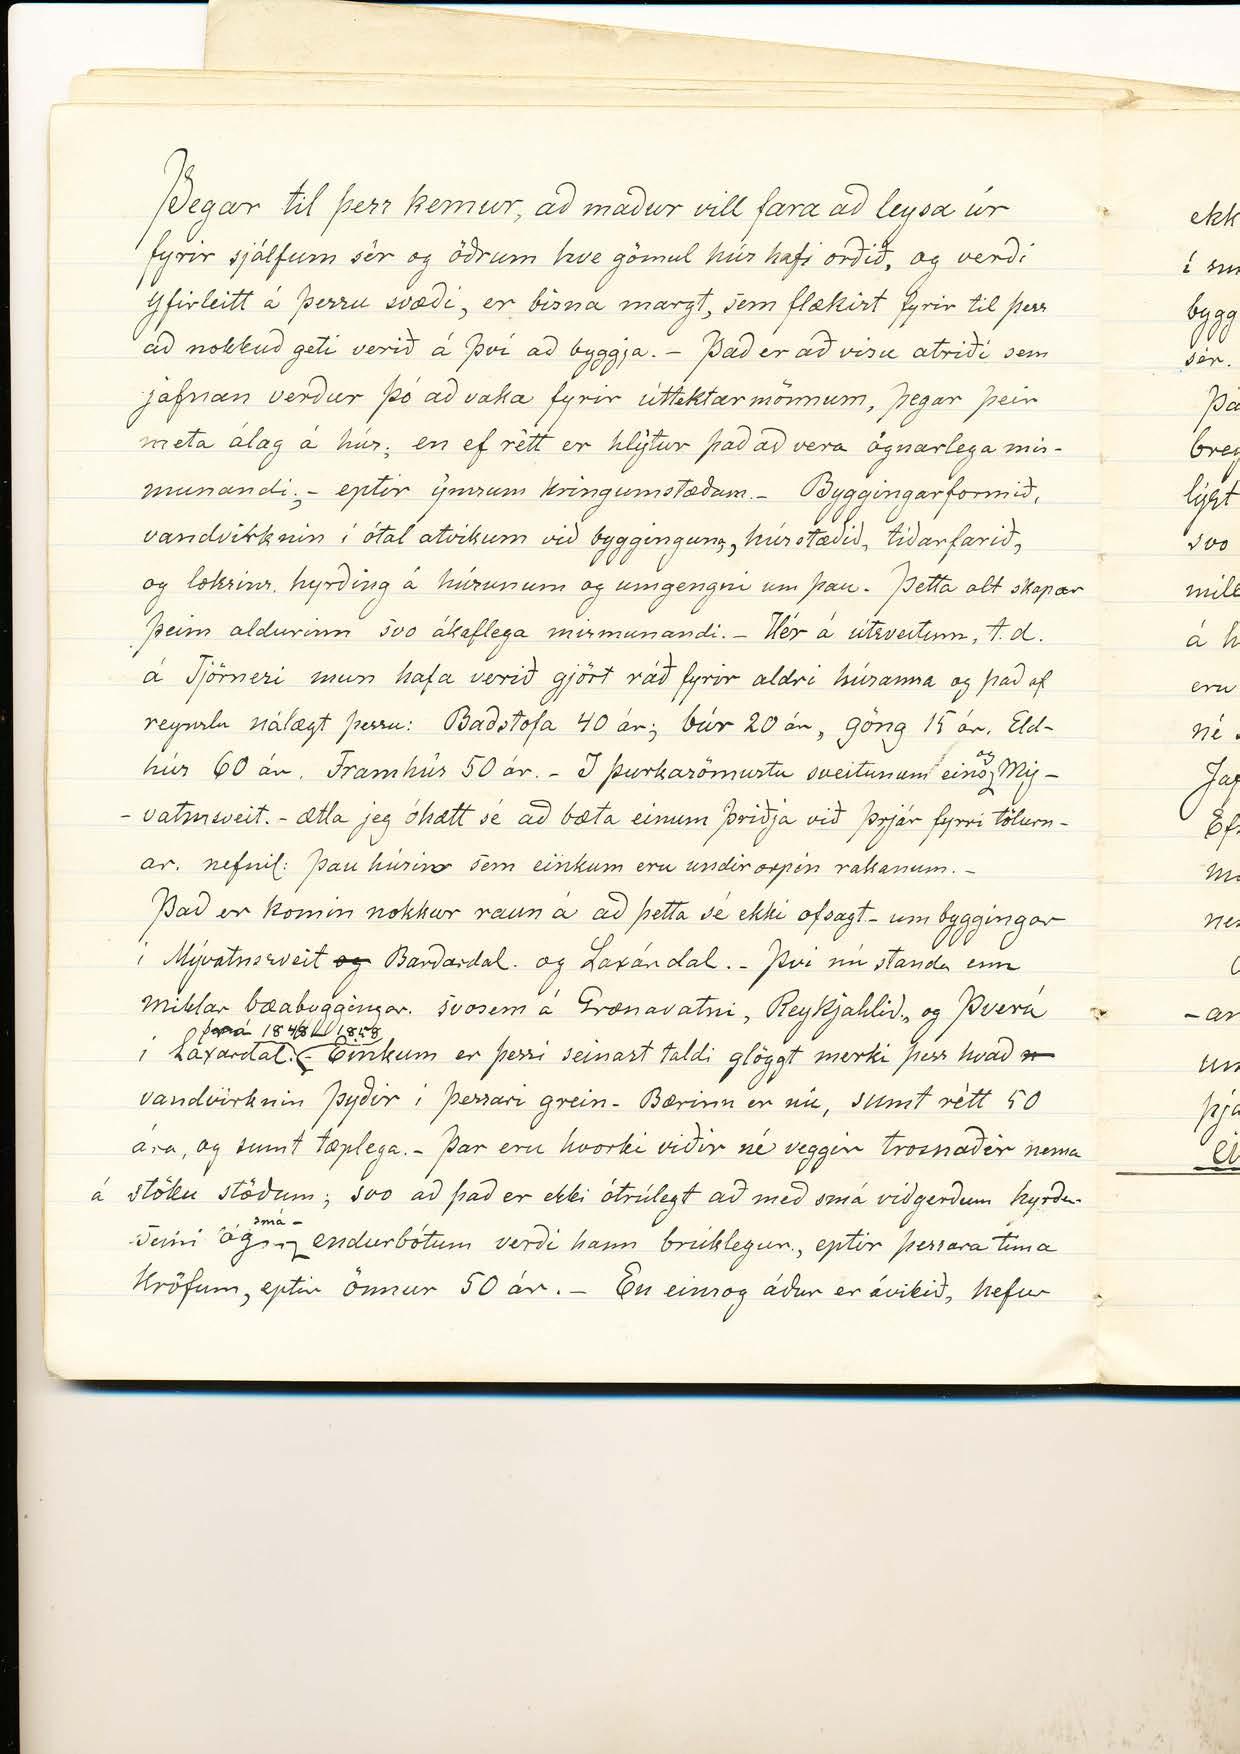 Þegar til þess kemur, að maður vill fara að leysa úr
fyrir sjálfum sér og öðrum hve gömul hús hafi orðið, og verði
yfirleitt á þessu svæði, er bísna margt, sem flækist fyrir til þess
að nokkuð geti verið á því að byggja. - Það er að vísu atriði sem
jafnan verður þó að vaka fyrir úttektarmönnum, þegar þeir
meta álag á hús; en ef rétt er hlýtur það að vera ógnarlega mis-
munandi; - eptir ýmsum kringumstæðum. - Byggingarformið,
vandvirknin í ótal atvikum við bygginguna, hússtæðið, tíðarfarið,
og loksins. hyrðing á húsunum og umgengni um þau. Þetta alt skapar
þeim aldurinn svo ákaflega mismunandi. - Hér á útsveitum, t.d.
á Tjörnesi mun hafa verið gjört ráð fyrir aldri húsanna og það af
reynslu nálægt þessu: Baðstofa 40 ár; búr 20 ár, göng 15 ár. Eld-
hús 60 ár. Framhús 50 ár. - I þurkasömustu sveitunum einsog Mý-
- vatnssveit. - ætla jeg óhætt sé að bæta einum þriðja við þrjár fyrri tölurn-
ar. nefnil: þau húsin sem einkum eru undirorpin rakanum. -
Það er komin nokkur raun á að þetta sé ekki ofsagt - um byggingar
í Mývatnssveit og Barðardal. og Laxárdal. - Því nú standa enn
miklar bæabyggingar. svosem á Grænavatni, Reykjahlið., og Þverá
1848 1858
í Laxárdal. - Einkum er þessi seinast taldi glöggt merki þess hvað
vandvirknin þýðir í þessari grein - Bærinn er nú, sumt rétt 50
ára, og sumt tæplega. - Þar eru hvorki viðir né veggir trosnaðir nema
á stöku stöðum; svo að það er ekki ótrúlegt að með smá viðgerðum hyrðu-
semi og smá- endurbótum verði hann brúklegur., eptir þessara tíma
kröfum, eptir önnur 50 ár. - En einsog áður er ávikið, hefur
ekk
í su
bygg
sér.
Þa
brey
lýst
svo
mile
á h
eru
né
Jaf
Ef
me
nes
-ar
um
þja